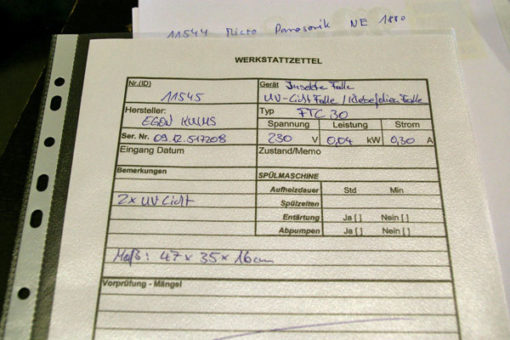 11544 Micro Panasonik NE 1880
WERKSTATTZETTEL
Nr.(ID) 11545
Gerät Insekten Falle
UV-Licht Falle / Klebefolien Falle
Hersteller: EGON
Typ FTC 30
Spannung Leistung Strom
Ser. Nr. 09.12.547208
230 V 0,04 kW 0,30 A
Eingang Datum
Zustand/Memo
Bemerkungen
SPÜLMASCHINE
Aufheizdauer Std Min
2x UV Licht
Spülzeiten
Entärtung Ja [ ] Nein [ ]
Abpumpen Ja [ ] Nein [ ]
Maß: 47 x 35 x 16 cm
Vorprüfung - Mängel